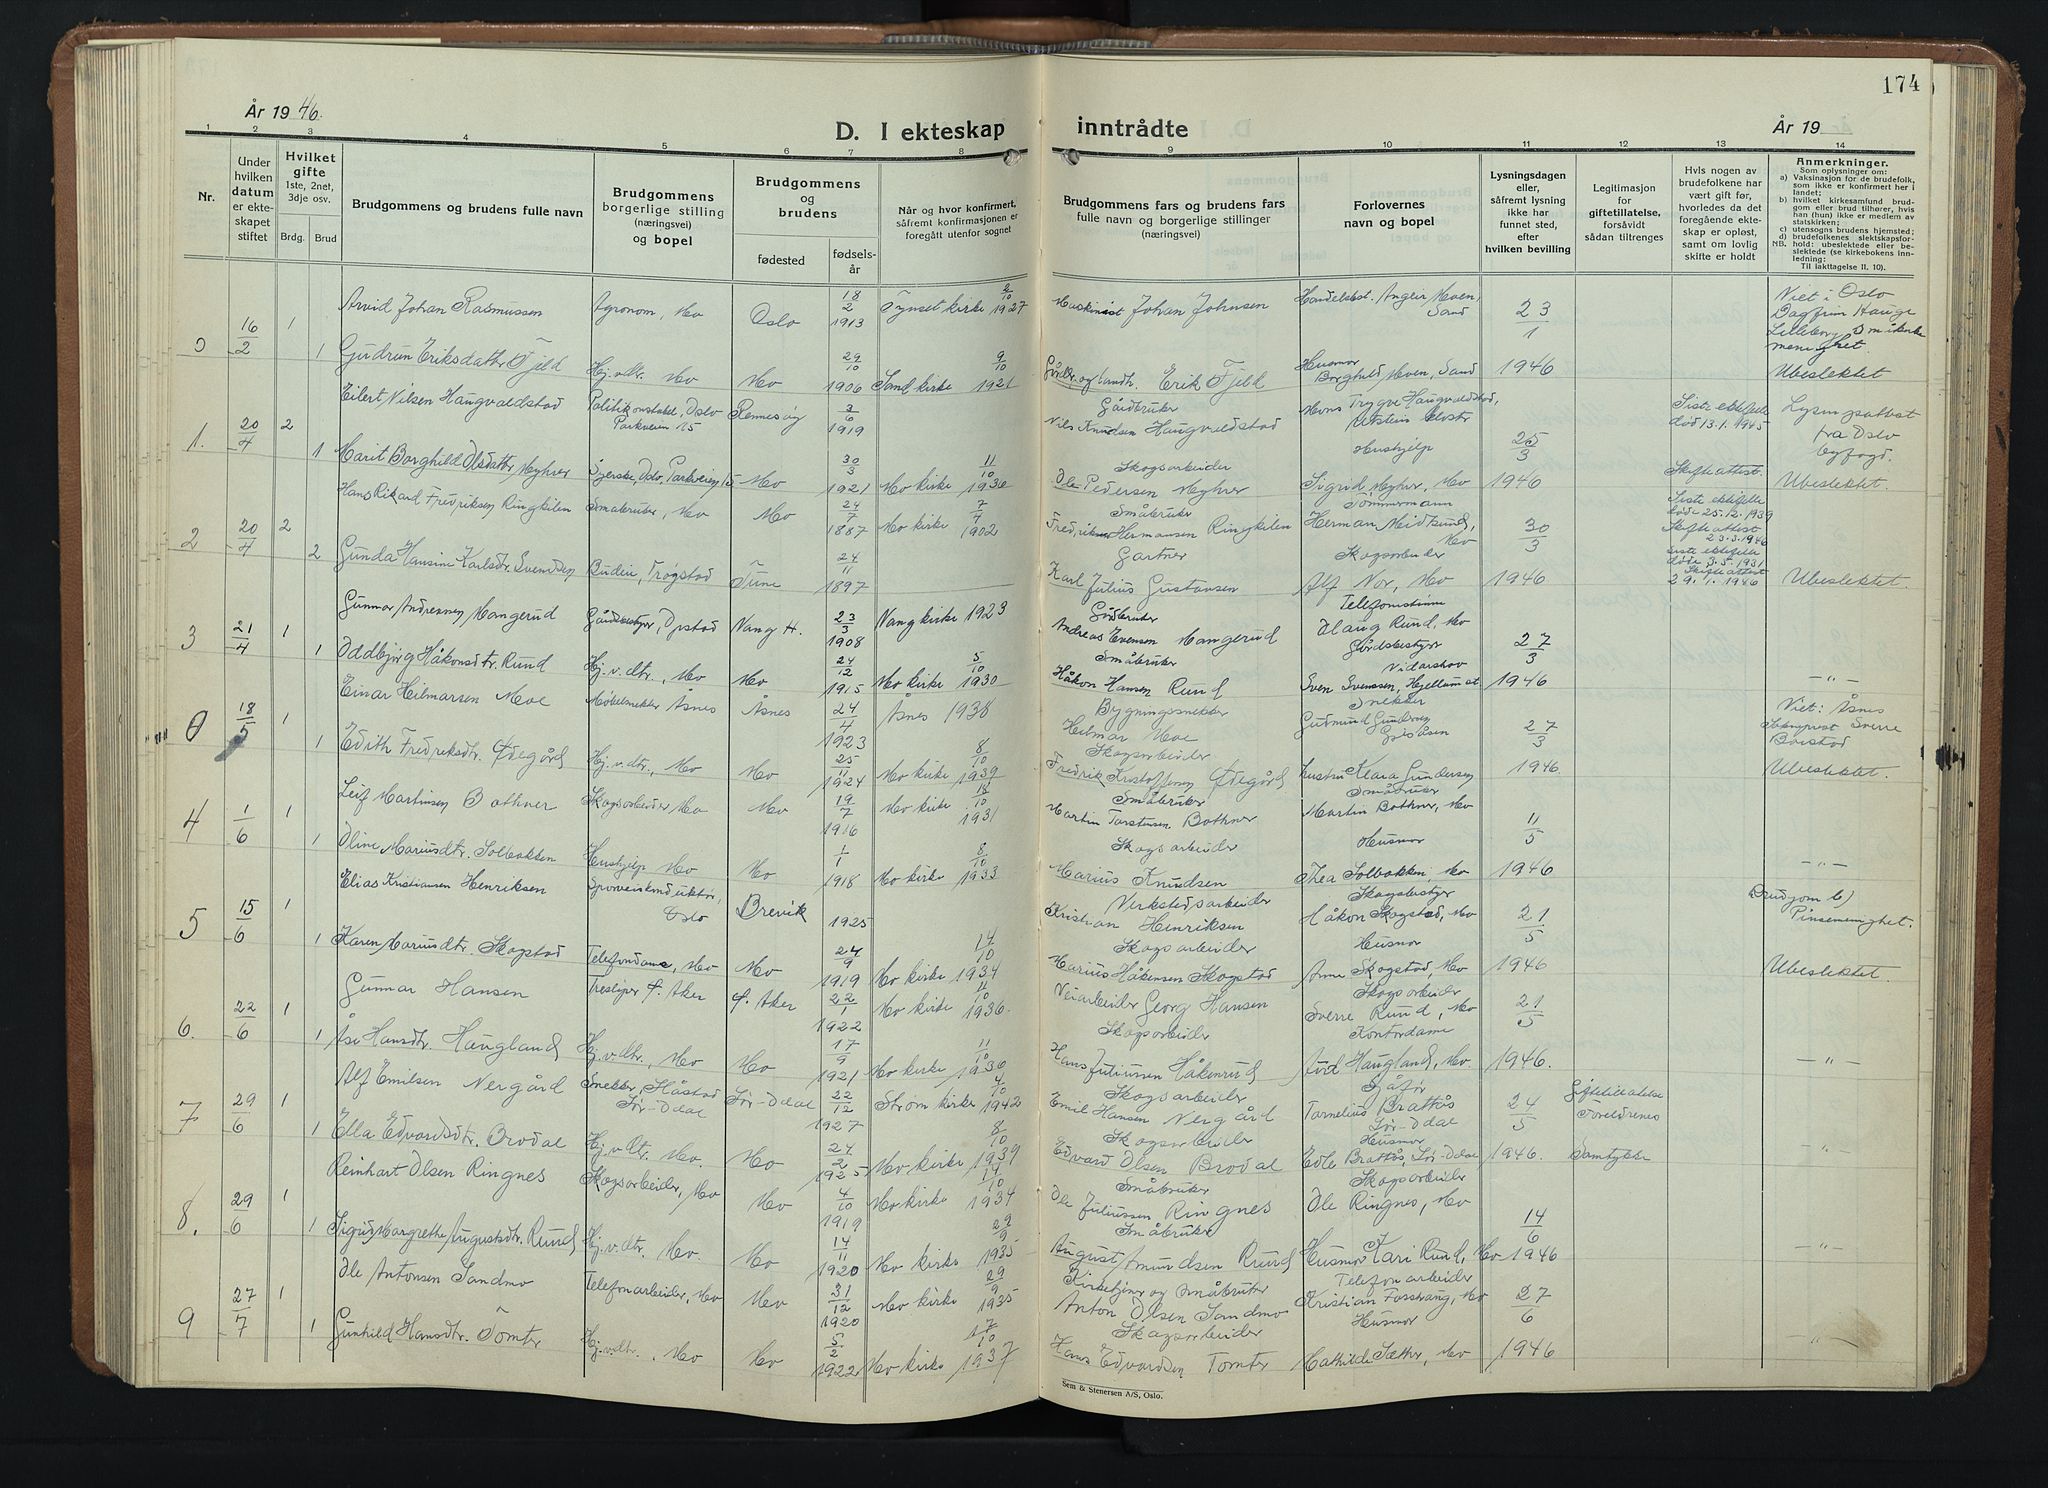 174
År 1946.
D. I ekteskap
inntrådte
År 19
1 2 3 4 5 6 7 8 9 10 11 12 13 14
Nr.
Under hvilken datum er ekteskapet stiftet
Hvilket gifte
1ste, 2net, 3dje osv.
Brdg. Brud
Brudgommens og brudens fulle navn
Brudgommens borgerlige stilling (næringsvei) og bopel
Brudgommens og brudens
fødested
fødselsår
Når og hvor konfirmert, såfremt konfirmasjonen er foregått utenfor sognet
Brudgommens fars og brudens fars fulle navn og borgerlige stillinger (næringsvei)
Forlovernes navn og bopel
Lysningsdagen eller, såfremt lysning ikke har funnet sted, efter hvilken bevilling
Legitimasjon for giftetillatelse, forsåvidt sådan tiltrenges
Hvis nogen av brudefolkene har vært gift før, hvorledes da det foregående ekteskap er opløst, samt om lovlig skifte er holdt
Anmerkninger.
Som oplysninger om:
a) Vaksinasjon for de brudefolk, som ikke er konfirmert her i landet;
b) hvilket kirkesamfund brudgom eller brud tilhører, hvis han (hun) ikke er medlem av statskirken;
c) utensogns brudens hjemsted;
d) brudefolkenes slektskapsforhold: ubeslektede eller beslektede (se kirkebokens innledning;
NB. Til iakttagelse II, 10).
0 16/2 1 Arvid Johan Rasmussen Agronom, Mo Oslo 18/2 1913 Tynset kirke 2/10 1927 Maskinist Johan Johnsen Handelsbest. Moen, Sand 23/1 Viet i Oslo Dagfinn Hauge Lilleborg menighet.
1 Gudrun Eriksdatter Fjeld Hj.v.dtr. Mo Mo 29/10 1906 Sand kirke 9/10 1921 Gårdbr. og landh. Erik Fjeld Husmor Borghild Moen, Sand 1946 Ubeslektet
1. 20/4 2 Eilert Nilsen Haugvaldstad Politikonstabel, Oslo Parkveien 15 Rennesøy 3/6 1919 Gårdbruker Nils Knudsen Haugvaldstad Mons Trygve Haugvaldstad, Utstein kloster 25/3 Siste ektefelle død 13.1.1945 Lysn.attest fra Oslo byfogd.
1 Marit Borghild Olsdatter Myhrer Syerske, Oslo, Parkveien 15 Mo 30/3 1921 Mo kirke 11/10 1936 Skogsarbeider Ole Pedersen Myhrer Hushjelp Sigrid Myhrer, Mo 1946 Skifteattest. Ubeslektet.
2 20/4 2 Hans Rikard Fredriksen Ringkilen Småbruker, Mo Mo 24/7 1887 Mo kirke 7/9 1902 Småbruker Fredrik Hermansen Ringkilen Tømmermann Herman Midtsund, Mo 30/3 Siste ektefelle døde 25.12.1939 Skifteattest 23.3.1946
2 Gunda Hansine Karlsdtr. Svendsen Budeie, Trøgstad Tune 24/11 1897 Gartner Karl Julius Gustavsen Skogsarbeider Alf Nor, Mo 1946 Siste ektefelle døde 3.5.1931 Skifteattest 29.1.1946 Ubeslektet.
3 21/4 1 Gunnar Andreassen Mangerud Gårdsbestyrer, Opstad Vang H. 23/3 1908 Vang kirke 1923 Gårdbruker Andreas Evensen Mangerud Telefonistinne Olaug Rund, Mo 27/3
1 Oddbjørg Håkonsdtr. Rund Hj.v.dtr., Mo Mo 24/12 1915 Mo kirke 5/10 1930 Småbruker Håkon Hansen Rund Gårdsbestyrer Vidarshov Sven Svenssen, Hjellum st. 1946 - " -
0 18/5 1 Einar Hilmarsen Moe Møbelsnekker Åsnes Åsnes 24/4 1923 Åsnes 1938 Bygningssnekker Hilmar Moe Snekker Gudmund Gundersen 27/3 Viet: Åsnes Sokneprest Sverre Borstad
1 Edith Fredriksdtr. Ødegård Hj.v.dtr., Mo Mo 25/11 1924 Mo kirke 8/10 1939 Skogsarbeider Fredrik Kristoffersen Ødegård Fru Klara Gundersen 1946. Ubeslektet.
4 1/6 1 Leif Martinsen Bothner Skogsarbeider Mo Mo 19/7 1916 Mo kirke 18/10 1931 Småbruker Martin Torstensen Bothner Småbruker Martin Bothner, Mo 11/5
1 Oline Mariusdtr. Solbakken Hushjelp Mo Mo 1/1 1918 Mo kirke 8/10 1933 Skogsarbeider Marius Knudsen Husmor Thea Solbakken, Mo 1946 - " -
5 15/6 1 Elias Kristiansen Henriksen Sporveiskonduktør, Oslo Brevik 1925 Verkstedsarbeider Kristian Henriksen Skogsbestyrer Håkon Skogstad, Mo 21/5 Brudgom b) Pinsemenighet.
1 Karen Mariusdtr. Skogstad Telefondame, Mo Mo 24/9 1919 Mo kirke 14/10 1934 Skogsarbeider Marius Håkensen Skogstad Husmor Anne Skogstad, Mo 1946 Ubeslektet.
6. 22/6 1 Gunnar Hansen Tresliper Ø. Aker Ø. Aker 22/1 1922 Mo kirke 11/10 1936. Veiarbeider Georg Hansen Skogsarbeider Sverre Rund, Mo 21/5
1 Åse Hansdtr. Haugland Hj.v.dtr., Mo Mo 17/9 1921 Mo kirke 11/10 1936 Skogsarbeider Hans Juliussen Håkenrud Kontordame Arid Haugland, Mo 1946. - " -
7 29/6 1 Alf Emilsen Nergård Snekker, Håstad Sør-Odal Sør-Odal 22/12 1927 Strøm kirke 4/10 1942 Skogsarbeider Emil Hansen Nergård Sjåfør Brattås Sør-Odal 24/5 Giftetillatelse Foreldrenes
1 Ella Edvardsdtr. Brodal Hj.v.dtr. Mo. Mo 24/2 1925 Mo kirke 8/10 1939 Skogsarbeider Edvard Olsen Brodal Husmor Edle Brattås, Sør-Odal 1946. Samtykke "
8. 29/6 1 Reinhart Olsen Ringnes Skogsarbeider, Mo Mo 4/10 1919 Mo kirke 14/10 1934 Småbruker Ole Juliussen Ringnes Skogsarbeider Ole Ringnes, Mo 14/6
1 Sigrid Margrethe Augustsdtr. Rund Hj.v.dtr. Mo. Mo 14/11 1920 Mo kirke 29/9 1935 Småbruker August Amundsen Rund Husmor Kari Rund, Mo 1946 - " -
9 27/7 1 Ole Antonsen Sandmo Telefonarbeider, Mo Mo 31/12 1920 Mo kirke 29/9 1935 Kirketjener og Småbruker Anton Olsen Sandmo Telefonarbeider Kristian Forstraug, Mo 27/6
1 Gunhild Hansdtr. Tomter Hj.v.dtr., Mo Mo 5/2 1922 Mo kirke 17/10 1937 Skogsarbeider Hans Edvardsen Tomter Husmor Mathilde Sæther, Mo 1946 - " -
Sem & Stenersen A/S, Oslo.